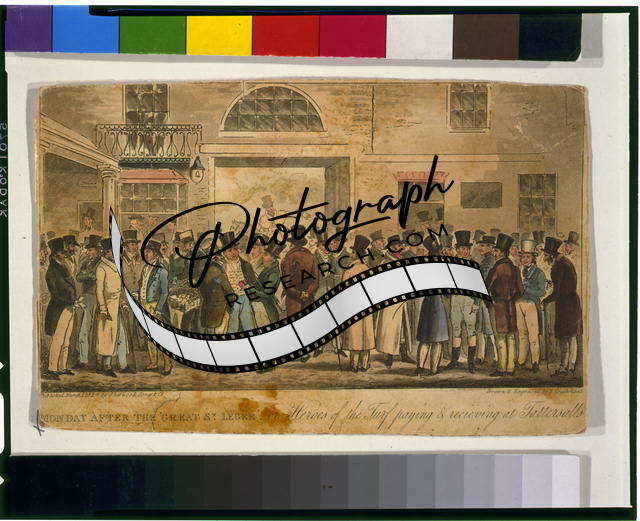 Photograph
RESEARCH.COM
MONDAY AFTER THE GREAT St. LEGER
Heroes of the Turf paying & recieving at Tattersalls